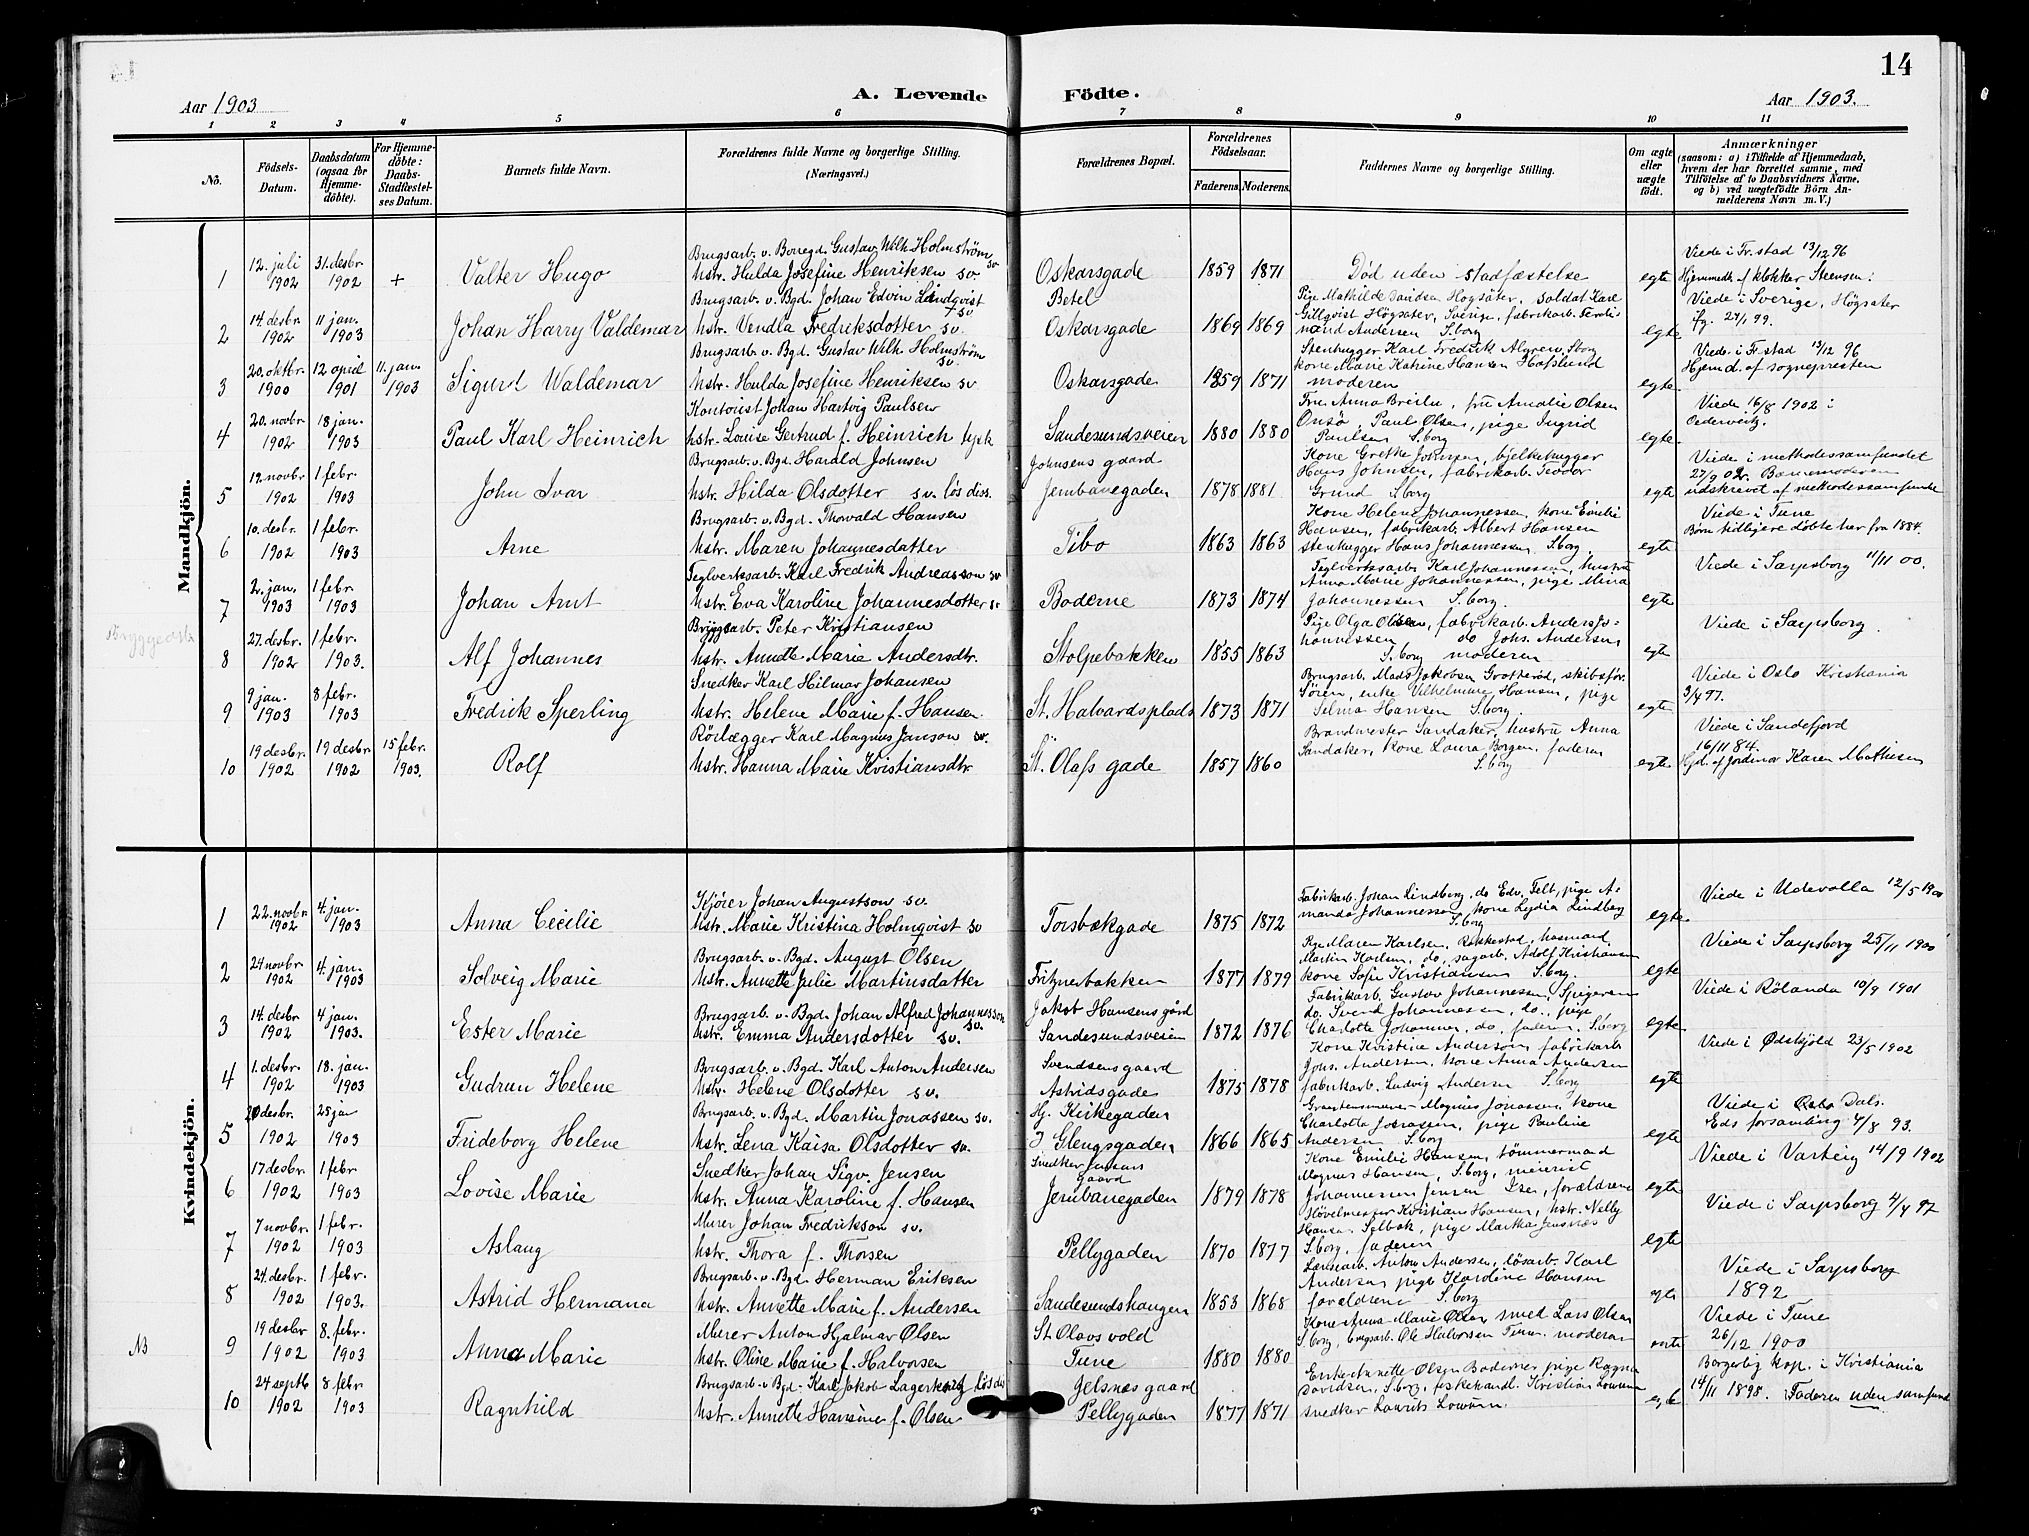 14
Aar 1903
A. Levende Födte.
Aar 1903.
1 2 3 4 5 6 7 8 9 10 11
No.
Födsels-Datum.
Daabsdatum (ogsaa for Hjemmedöbte).
For Hjemmedöbte: Daabs-Stadfæstelses Datum.
Barnets fulde Navn.
Forældrenes fulde Navne og borgerlige Stilling. (Næringsvei.)
Forældrenes Bopæl.
Forældrenes Födselsaar.
Faderens. Moderens.
Faddernes Navne og borgerlige Stilling.
Om ægte eller uægte födt.
Anmærkninger
(saasom: a) i Tilfælde af Hjemmedaab,
hvem der har forrettet samme, med
Tilföielse af to Daabsvidners Navne,
og b) ved uægtefödte Börn An-
melderens Navn m. V.)
Mandkjön.
1 12. juli 1902 31. desbr. 1902 + Valter Hugo
Brugsarb. v. Borregd. Gustav Wilh. Holmström sv
hstr. Hulda Josefine Henriksen sv.
Oskarsgade 1859 1871 Död uden stadfæstelse egte
Viede i Fr.stad 13/12 96
Hjemmedt. af klokker Steensen.
2 14. desbr. 1902 11 jan. 1903 Johan Harry Valdemar
Brugsarb. v. Bgd. Johan Edvin Lindqvist sv
hstr. Vendla Fredriksdotter sv.
Betel
Oskarsgade 1869 1869
Pige Mathilde Davidsen Hogsäter, soldat Karl
Gillqvist Högsäter, Sverige, fabrikarb. Ferdi-
nand Andersen S.borg egte
Viede i Sverige, Högsäter
fg. 27/1 99.
3 20. oktbr. 1900 12 april 1901 11. jan. 1903 Sigurd Waldemar
Brugsarb. v. Bgd. Gustav Wilh. Holmström sv.
hstr. Hulda Josefine Henriksen sv
Oskarsgade 1859 1871
Stenhugger Karl Fredrik Algren S.borg
kone Marie Katrine Hansen Hafslund
moderen egte
Viede i F.stad 13/12 96
Hjemd. af sognepresten
4 20. novbr. 1902 18 jan. 1903 Paul Karl Heinrich
Kontorist Johan Hartvig Paulsen
hstr. Louise Gertrud f. Heinrich tysk
Sandesundsveien 1880 1880
Fru Anna Breilu, fru Amalie Olsen
Onsö, Paul Olsen, pige Ingrid
Paulsen S.borg egte
Viede 16/8 1902 i
5 12. novbr 1902 1 febr. 1903 John Ivar
Brugsarb. v. Bgd. Harald Johnsen
hstr. Hilda Olsdotter sv. lös diss.
Johnsens gaard
Jernbanegaden 1878 1881
Kone Grethe Johnsen, bjelkehugger
Hans Johnsen, fabrikarb. Teodor
Grund S.borg egte
Viede i methodessamfundet
27/9 02. Barnemoderen
udskrevet af methodessamfundet
6 10. desbr. 1902 1 febr. 1903 Arne
Brugsarb. v. Bgd. Thorvald Hansen
hstr. Maren Johannesdatter
Tibo 1863 1863
Kone Helene Johannessen, kone Emilie
Hansen, fabrikarb. Albert Hansen
stenhugger Hans Johannessen S.borg egte
Viede i Tune
Börn tidligere döbte her fra 1884.
7 2. jan. 1903 1 febr. 1903 Johan Arnt
Teglverksarb. Karl Fredrik Andreasson sv
hstr. Eva Karoline Johannesdotter sv
Boderne 1873 1874
Teglverksarb. Karl Johannessen, hustru
Anna Marie Johannessen, pige Mina
Johannessen S.borg. egte
Viede i Sarpsborg 11/11 00.
Bryggearb.
8 27. desbr. 1902 1 febr. 1903. Alf Johannes
Bryggearb. Peter Kristiansen
hstr. Annette Marie Andersdtr.
Stolpebakken 1855 1863
Pige Olga Olsen, fabrikarb. Anders Jo-
hannessen do Johs. Andersen
S.borg moderen egte
Viede i Sarpsborg.
9 9 jan. 1903 8 febr. 1903 Fredrik Sperling
Snedker Karl Hilmar Johansen
hstr. Helene Marie f. Hansen.
St. Halvardsplads 1873 1871
Brugsarb. Mads Jakobsen Grotteröd, skibsför.
Sören, enke Vilhelmine Hansen, pige
Selma Hansen S.borg. egte
Viede i Oslo Kristiania
3/4 97.
10 19 desbr. 1902 19 desbr. 1902 15 febr. 1903. Rolf
Rörlægger Karl Magnus Janson sv.
hstr. Hanna Marie Kristiansdtr.
St. Olafs gade 1857 1860
Brandmester Sandaker, hustru Anna
Sandaker, kone Laura Borgen, faderen
S.borg egte
Viede i Sandefjord
16/11 84.
Hjd. af jordmor Karen Mathisen
Kvindekjön.
1 22. novbr. 1902 4. jan. 1903 Anna Cecilie
Kjörer Johan Augustson sv.
hstr. Marie Kristina Holmqvist sv
Torsbækgade 1875 1872
Fabrikarb. Johan Lindberg, do Edv. Felt, pige A-
manda Johannessen, kone Lydia Lindberg
S.borg egte.
Viede i Udevalla 12/5 1900
2 24 novbr. 1902 4. jan. 1903 Solveig Marie
Brugsarb. v. Bgd. August Olsen
hstr. Annette Julie Martinsdatter
Fritznerbakken 1877 1879
Pige Maren Karlsen, Rokkestad, husmand
Martin Karlsen, do, sagarb. Adolf Kristiansen
kone Sofie Kristiansen S.borg. egte
Viede i Sarpsborg 25/11 1900
3 14. desbr. 1902 4 jan. 1903. Ester Marie
Brugsarb. v. Bgd. Johan Alfred Johannesson sv.
hstr. Emma Andersdotter sv.
Jakob Hansens gård
Sandesundsveien 1872 1876
Fabrikarb. Gustav Johannessen, Spigeren
do. Svend Johannessen, do., pige
Charlotte Johannes, do, faderen S.borg egte
Viede i Rölanda 10/9 1901
4 1. desbr. 1902 18. jan. 1903 Gudrun Helene
Brugsarb. v. Bgd. Karl Anton Andersen
hstr. Helene Olsdotter sv.
Svendsensgaard
Astridsgade 1875 1878
Kone Kristine Anderson, fabrikarb.
Johs. Andersen, kone Anna Andersen
fabrikarb. Ludvig Andersen S.borg egte
Viede i Ödskjöld 23/5 1902
5 20 desbr. 1902 25 jan 1903 Frideborg Helene
Brugsarb. v. Bgd. Martin Jonassen sv.
hstr. Lena Kaisa Olsdotter sv.
Hj. Kirkegaden
I Glengsgaden 1866 1865
Magnus Jonassen, kone
Charlotte Jonassen, pige Pauline
Andersen S.borg egte
Viede i Dals.
Eds forsamling 4/8 93.
6 17 desbr. 1902 1 febr 1903 Lovise Marie
Snedker Johan Sigv. Jensen
hstr. Anna Karoline f. Hansen
Snedker Jensens gaard
Jernbanegaden 1879 1878
Kone Emilie Hansen, tömmermand
Magnus Hansen, S.borg, meierist
Johannessen Jensen Ise, forældrene egte
Viede i Varteig 14/9 1902
7 7 novbr. 1902 1 febr. 1903 Aslaug
Murer Johan Fredrikson sv.
hstr. Thora f. Thorsen
Pellygaden 1870 1877
Hövelmester Kristian Hansen, hstr. Nelly
Hansen Selbak, pige Martha Jensnæs
S.borg, faderen egte
Viede i Sarpsborg 4/4 97
8 24. desbr. 1902 1 febr. 1903. Astrid Hermana
Brugsarb. v. Bgd. Herman Eriksen
hstr. Annette Marie f. Andersen
Sandesundshaugen 1853 1868
Anton Andersen, lösarb. Karl
Andersen pige Karoline Hansen
forældrene S.borg egte
Viede i Sarpsborg
1892
NB 9 19 desbr 1902 8. febr. 1903 Anna Marie
Murer Anton Hjalmar Olsen
hstr. Oline Marie f. Halvorsen
St. Olavs vold
Tune 1880 1880
Kone Anna Marie Olsen smed Lars Olsen
S.borg, brugsarb. Ole Halvorsen Tune. moderen
Viede i Tune
26/12 1900
10 24 septb 1902 8 febr 1903 Ragnhild
Brugsarb. v. Bgd. Karl Jakob Lagerkvist lös dis
hstr. Annette Hansine f. Olsen
Jelsnes gaard
Pellygaden 1877 1871
Enke Annette Olsen Boderne, pige Ragna
Davidsen, S.borg, fiskehandl. Kristian Lowum
snedker Laurits Lowum egte
Borgerlig kop. i Kristiania
14/11 1898. Faderen uden samfund